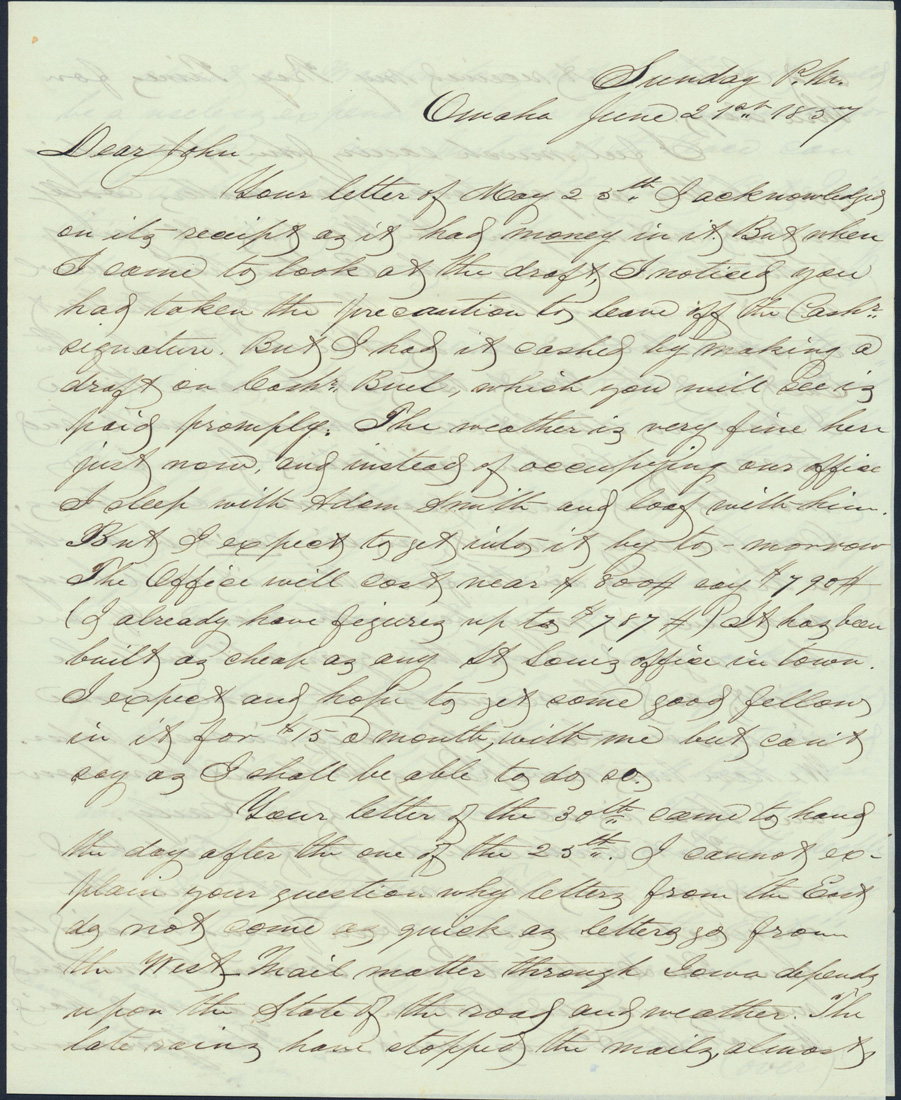 Sunday P.M.
Omaha June 21st 1857
Dear John
Your letter of May 25th. I acknowledged
on its receipt as it had money in it. But when
I came to look at the draft, I noticed you
had taken the precaution to leave off the Cashr.
signature. But I had it cashed by making a
draft on Cashr. Buel, which you will see is
paid promply. The weather is very fine here
just now, and instead of occupying our office
I sleep with Adam Smith and loaf with him.
But I expect to get into it by to-morrow
The Office will cost near $800# say $790#
(I already have figures up to $787#) It has been
built as cheap as any St Louis office in town.
I expect and hope to get some good fellows
in it for $15 a month, with me but can't
say as I shall be able to do so.
Your letter of the 30th came to hand
the day after the one of the 25th. I cannot ex-
plain your question why letters from the East
do not come as quick as letters go from
the West. Mail matter through Iowa depends
upon the State of the road and weather. The
late rains have stopped the mails, almost,
(over)